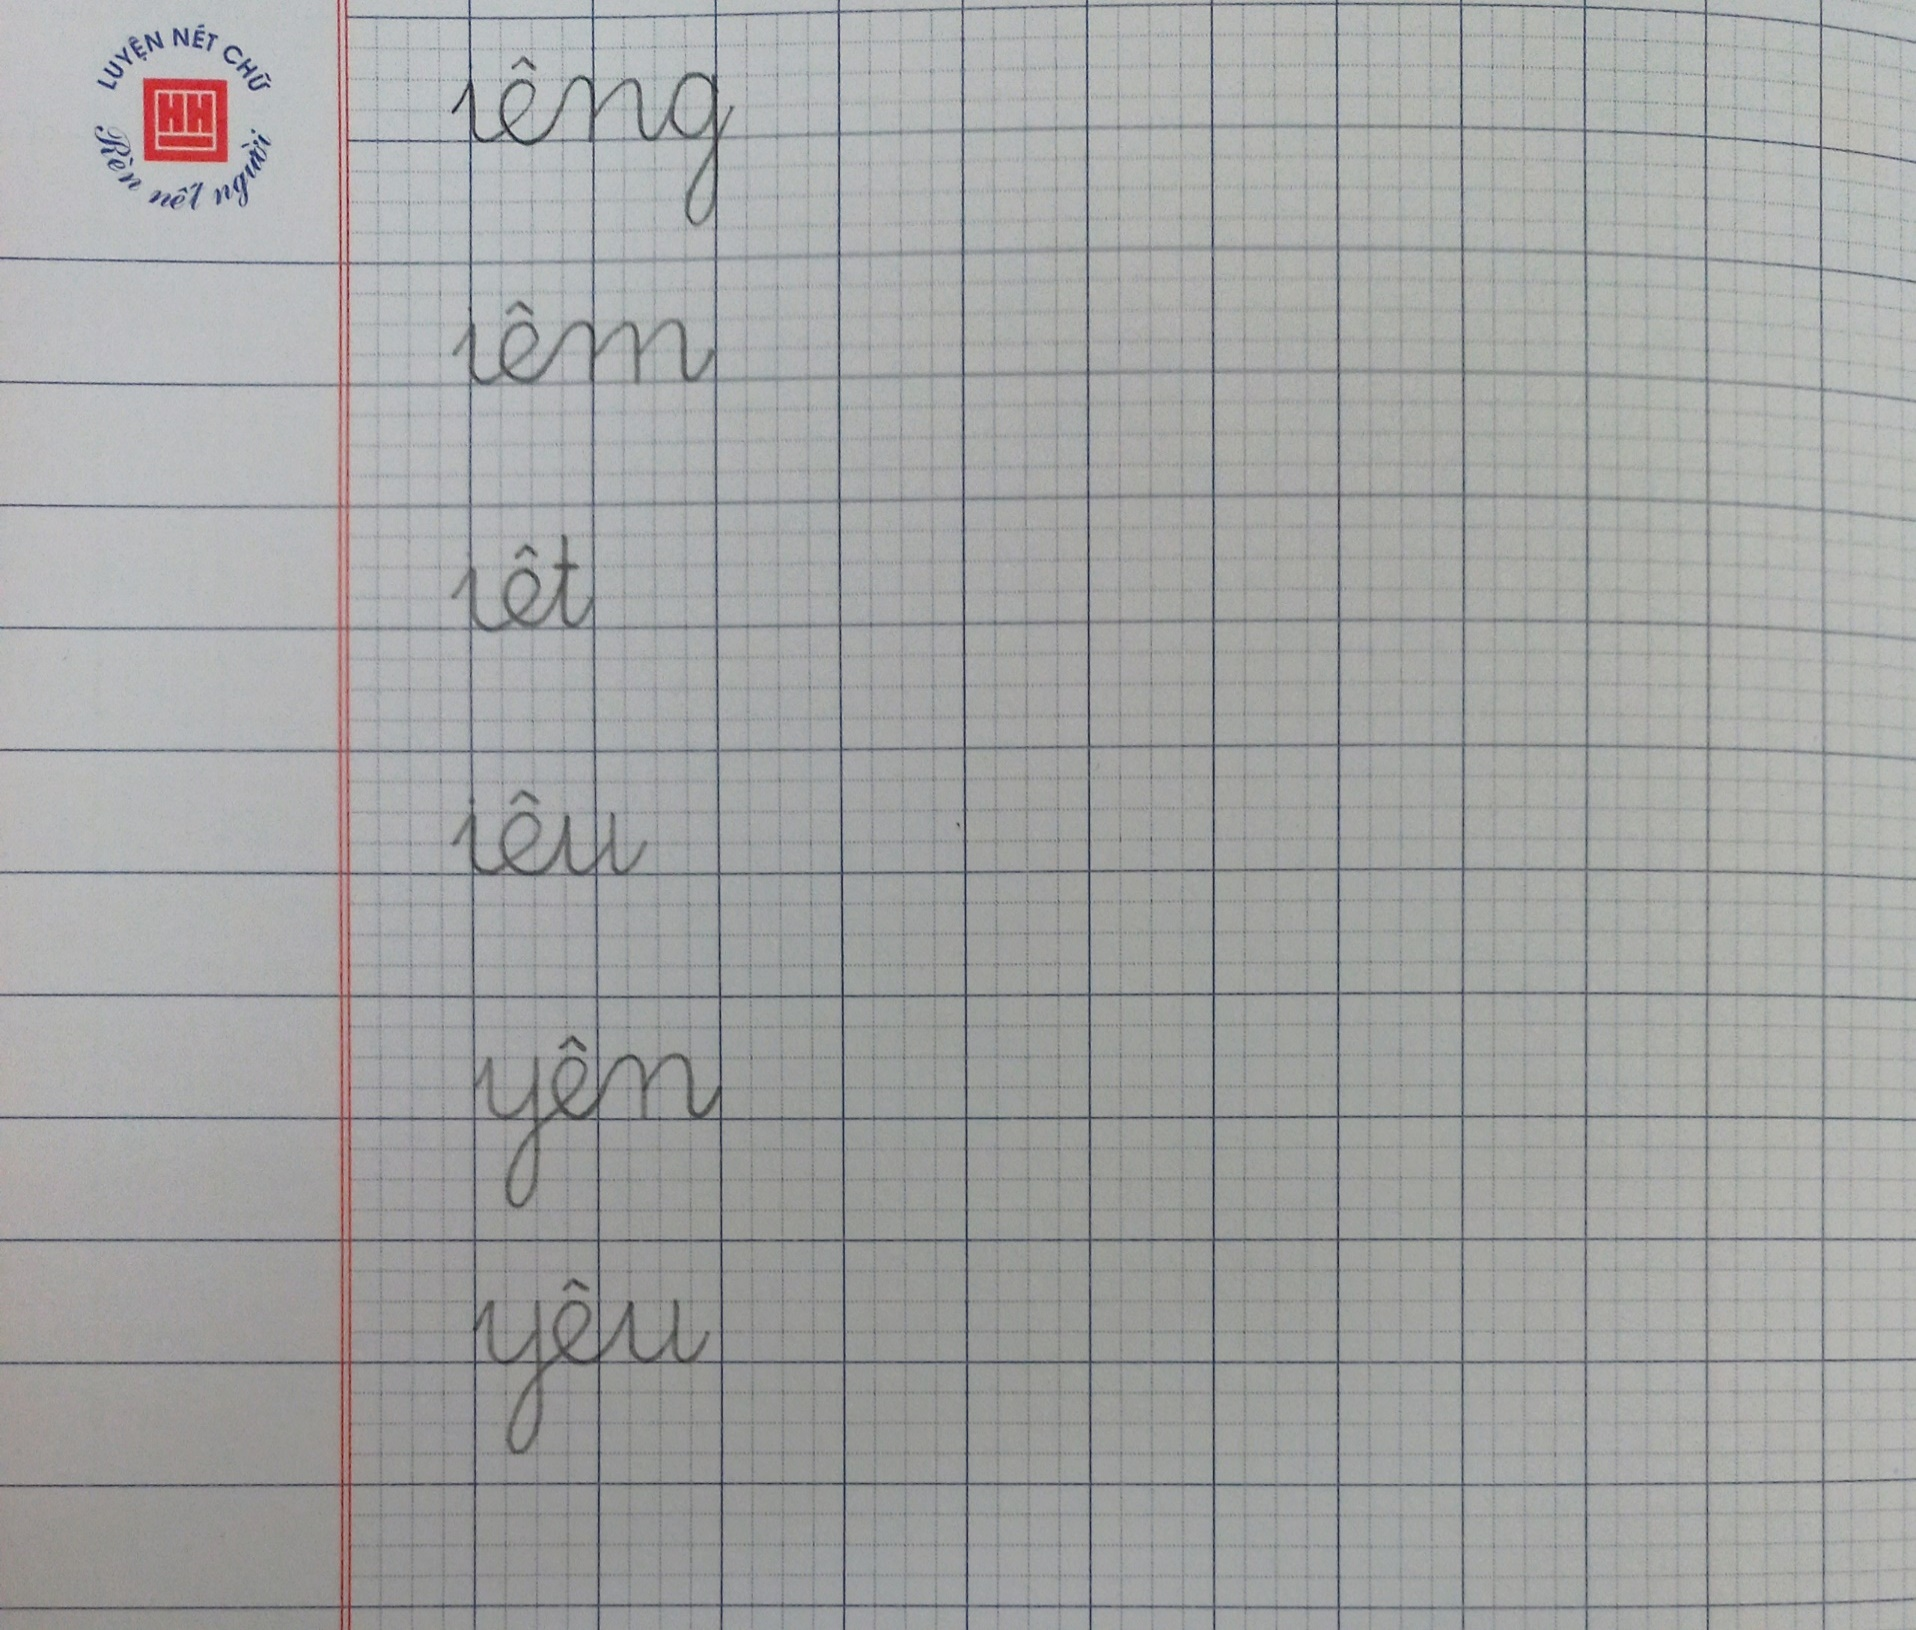 LUYỆN NÉT CHỮ
HH
Rèn nết người
iêng
iêm
iêt
iêu
yên
yêu